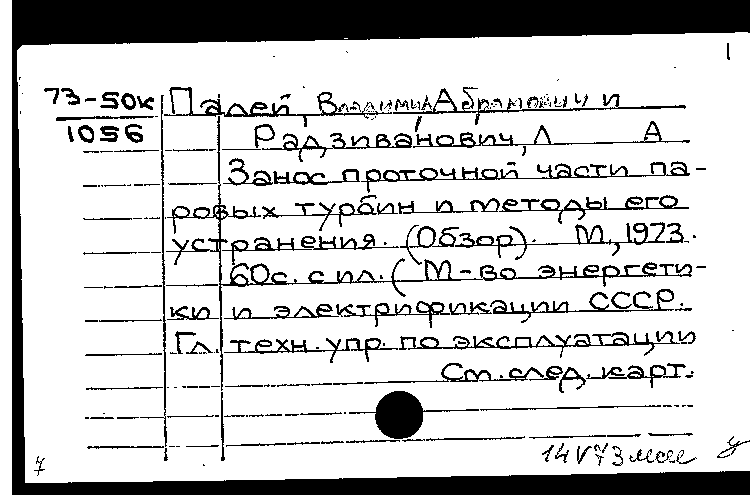 1
73-50к Палей, Владимир Абрамович и
1056 Радзиванович, Л А
Занос проточной части па-
ровых турбин и методы его
устранения. (Обзор). М., 1973.
60с. с ил. (М-во энергети-
ки и электрификации СССР.
Гл. техн. упр. по эксплуатации
См. след. карт.
7 14 V 73